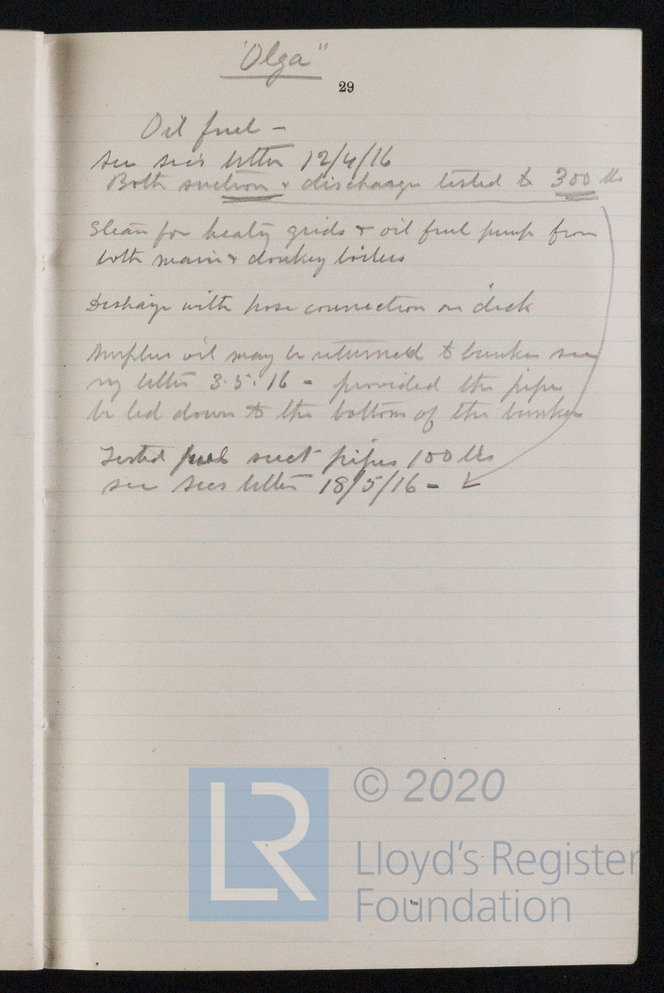 "Olga"
29
Oil fuel -
see secs letter 12/4/16
Both suction & discharge tested to 300 lbs
Steam for heatg grids & oil fuel pump from
both main & donkey boilers
Discharge with hose connection on deck
Surplus oil may be returned to bunker see
my letter 3.5.16 - provided the pipe
be led down to the bottom of the bunker
Tested fuel suct pipes 100 lbs
see secs letter 18/5/16 -
LR
© 2020
Lloyd's Register
Foundation